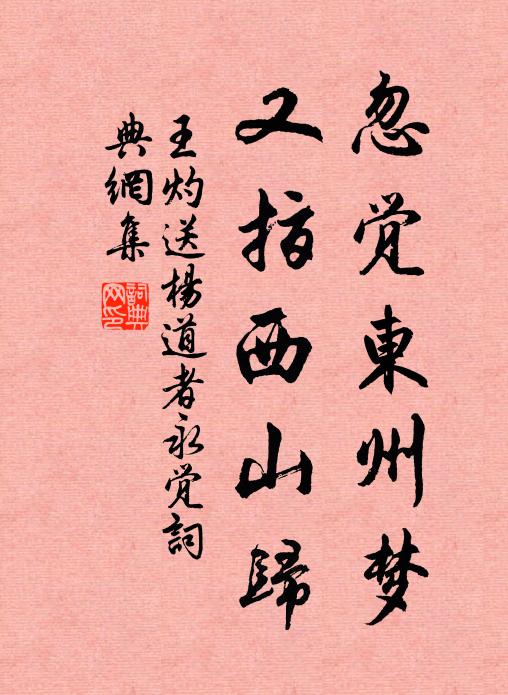 忽觉東州梦
又指西山歸
王灼送楊道者永觉詞
典網集
詞典网印